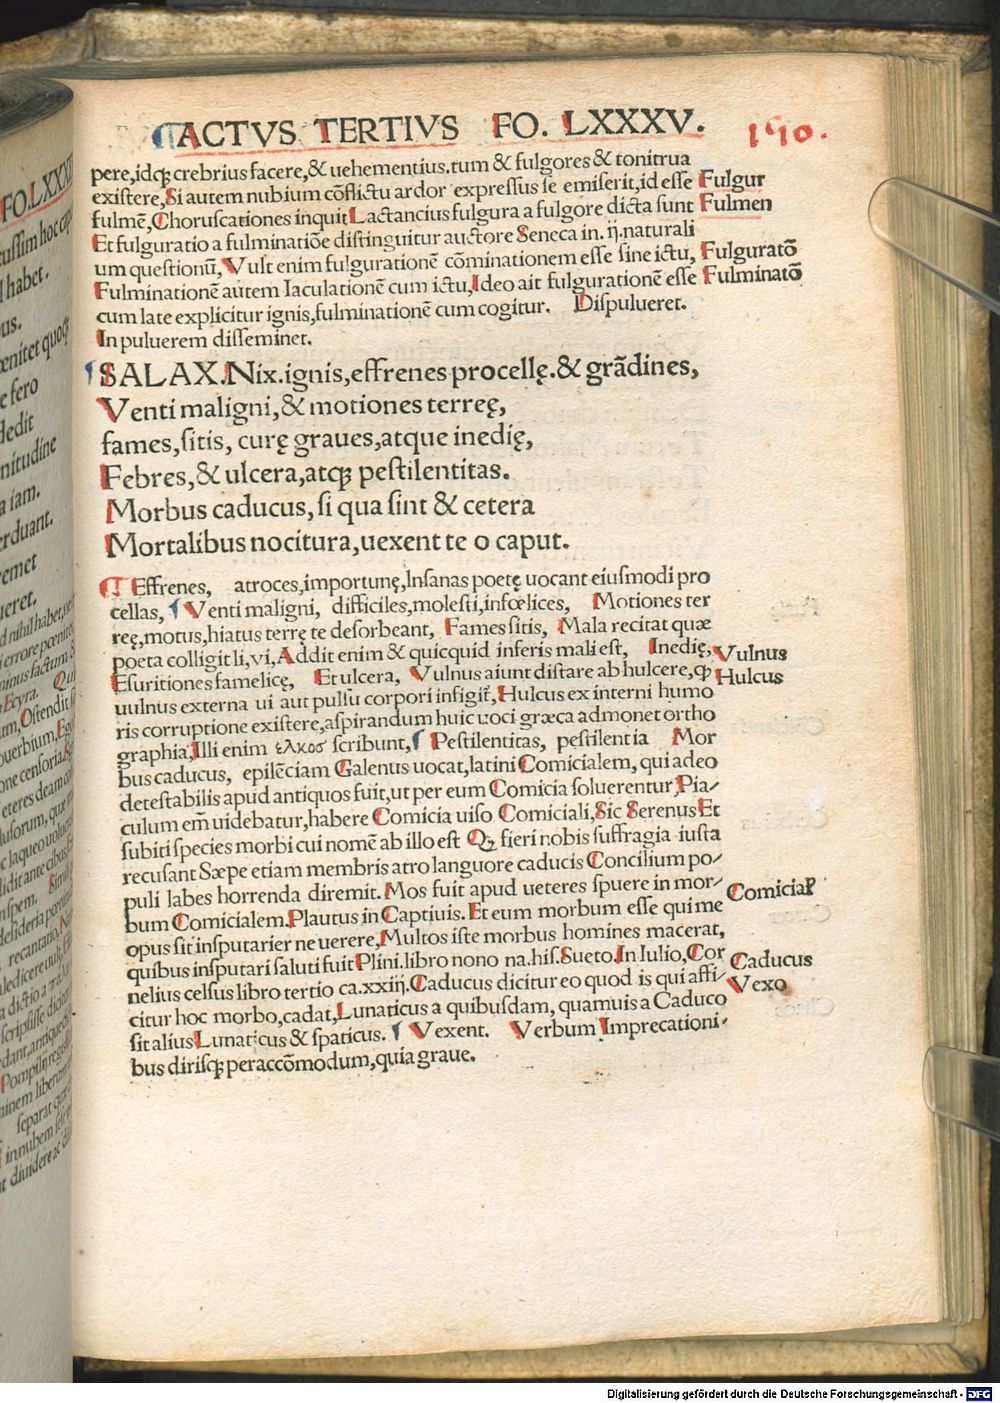 ¶ACTVS TERTIVS FO. LXXXV. 150.
pere,idqꝫ crebrius facere,& uehementius.tum & fulgores & tonitrua
existere,Si autem nubium cõflictu ardor expressus se emiserit,id esse Fulgur
fulmẽ,Choruscationes inquit Lactancius fulgura a fulgore dicta sunt Fulmen
Et fulguratio a fulminatiõe distinguitur auctore Seneca in.ij.naturali
um questionũ,Vult enim fulgurationẽ cõminationem esse sine ictu, Fulguratõ
Fulminationẽ autem Iaculationẽ cum ictu,Ideo ait fulgurationẽ esse Fulminatõ
cum late explicitur ignis,fulminationẽ cum cogitur. Dispulueret.
In puluerem disseminet.
¶SALAX.Nix.ignis,effrenes procellę.& grãdines,
Venti maligni,& motiones terreę,
fames,sitis, curę graues,atque inedię,
Febres,& ulcera,atqꝫ pestilentitas.
Morbus caducus,si qua sint & cetera
Mortalibus nocitura,uexent te o caput.
¶ Effrenes, atroces,importunę,Insanas poetę uocant eiusmodi pro
cellas,¶Venti maligni, difficiles,molesti,infœlices, Motiones ter
reę,motus,hiatus terrę te desorbeant, Fames sitis, Mala recitat quæ
poeta colligit li,vi,Addit enim & quicquid inferis mali est, Inedię, Vulnus
Esuritiones famelicę, Et ulcera, Vulnus aiunt distare ab hulcere,ꝙ Hulcus
uulnus externa ui aut pulsu corpori infigit̃,Hulcus ex interni humo
ris corruptione existere,aspirandum huic uoci græca admonet ortho
graphia,Illi enim ελκοσ scribunt,¶Pestilentitas, pestilentia Mor
bus caducus, epilẽciam Galenus uocat,latini Comicialem, qui adeo
detestabilis apud antiquos fuit,ut per eum Comicia soluerentur,Pia/
culum em̃ uidebatur,habere Comicia uiso Comiciali,Sic Serenus Et
subiti species morbi cui nomẽ ab illo est Qꝫ fieri nobis suffragia iusta
recusant Sæpe etiam membris atro languore caducis Concilium po/
puli labes horrenda diremit. Mos fuit apud ueteres spuere in mor/
bum Comicialem.Plautus in Captiuis. Et eum morbum esse qui me Comicial̃
opus sit insputarier ne uerere,Multos iste morbus homines macerat,
quibus insputari saluti fuit Plini.libro nono na.his.Sueto.In Iulio,Cor Caducus
nelius celsus libro tertio ca.xxiij.Caducus dicitur eo quod is qui affi/ Vexo
citur hoc morbo,cadat,Lunaticus a quibusdam, quamuis a Caduco
sit alius Lunaticus & spaticus. ¶Vexent. Verbum Imprecationi/
bus dirisqꝫ peraccõmodum,quia graue.
Digitalisierung gefördert durch die Deutsche Forschungsgemeinschaft - DFG